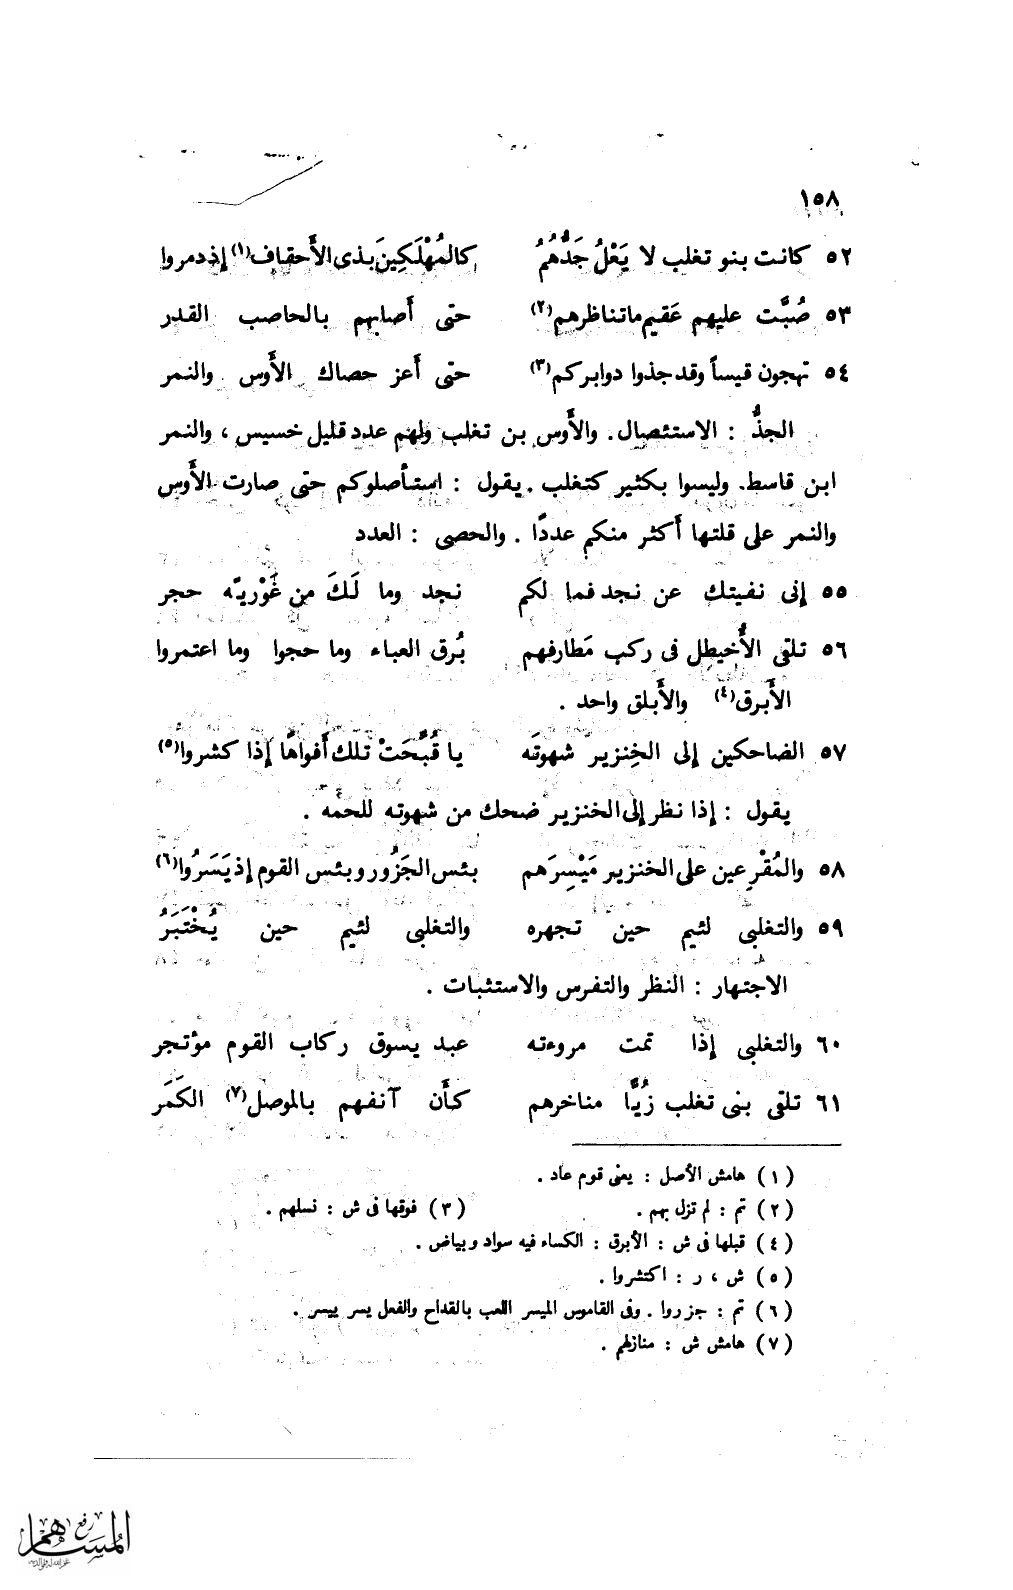 ١٥٨
٥٢ كانت بنو تغلب لا يَعْلُ جَدُّهُمُ كالمُهْلَكِينَ بذى الأَحقاف(١) إذ دمروا
٥٣ صُبَّت عليهم عَقيم ما تناظرهم(٢) حتى أَصابهم بالحاصب القدر
٥٤ تهجون قيساً وقد جذوا دوابركم(٣) حتى أَعز حصاك الأَوس والنمر
الجذُّ : الاستئصال. والأَوس بن تغلب ولهم عدد قليل خسيس ، والنمر
ابن قاسط. وليسوا بكثير كتغلب . يقول : استأصلوكم حتى صارت الأَوس
والنمر على قلتها أَكثر منكم عددًا . والحصى : العدد
٥٥ إنى نفيتك عن نجد فما لكم نجد وما لَكَ من غَوْريّه حجر
٥٦ تلقى الأُخيطل فى ركب مَطارفهم بُرق العباء وما حجوا وما اعتمروا
الأَبرق(٤) والأَبلق واحد .
٥٧ الضاحكين إلى الخِنزير شهوتَه يا قُبَّحَتْ تلك أَفواهًا إذا كشروا(٥)
يقول : إذا نظر إلى الخنزير ضحك من شهوته للحمه .
٥٨ والمُقْرِعين على الخنزير مَيْسِرَهم بئس الجَزُور وبئس القوم إذ يَسَرُوا(٦)
٥٩ والتغلبى لئيم حين تجهره والتغلبى لئيم حين يُخْتَبَرُ
الاجتهار : النظر والتفرس والاستثبات .
٦٠ والتغلبى إذا تمت مروءته عبد يسوق ركاب القوم مؤتجر
٦١ تلقى بنى تغلب زُبًّا مناخرهم كأَن آنفهم بالموصل(٧) الكَمَر
(١) هامش الأصل : يعنى قوم عاد .
(٢) تم : لم تزل بهم . (٣) فوقها فى ش : نسلهم .
(٤) قبلها فى ش : الأبرق : الكساء فيه سواد وبياض .
(٥) ش ، ر : اكتشروا .
(٦) تم : جزروا . وفى القاموس الميسر اللعب بالقداح والفعل يسر ييسر .
(٧) هامش ش : منازلهم .
رفع
المساهم